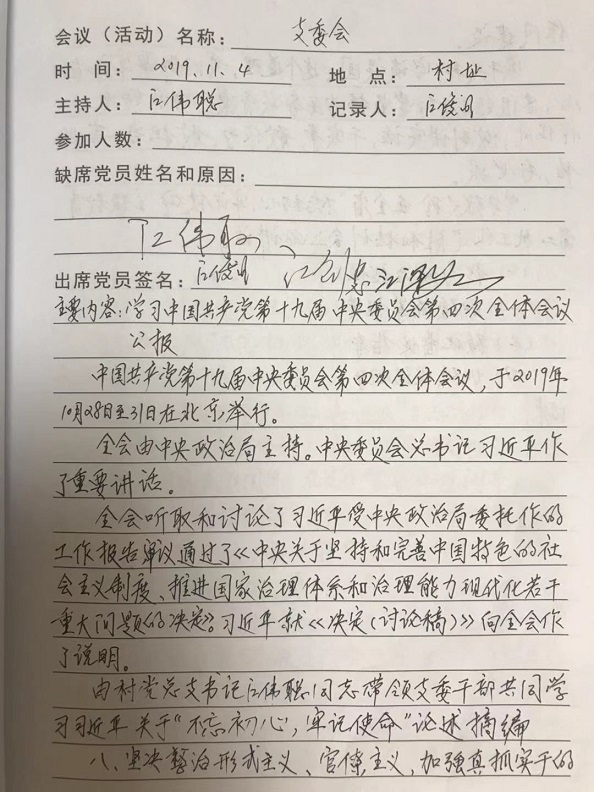 会议（活动）名称：支委会
时 间：2019.11.4 地 点：村址
主持人：江伟聪 记录人：江俊
参加人数：
缺席党员姓名和原因：
江伟聪
出席党员签名：江俊 江
主要内容：学习中国共产党第十九届中央委员会第四次全体会议
公报
中国共产党第十九届中央委员会第四次全体会议，于2019年
10月28日至31日在北京举行。
全会由中央政治局主持。中央委员会总书记习近平作
了重要讲话。
全会听取和讨论了习近平受中央政治局委托作的
工作报告审议通过了《中央关于坚持和完善中国特色的社
会主义制度、推进国家治理体系和治理能力现代化若干
重大问题的决定》。习近平就《决定（讨论稿）》向全会作
了说明。
由村党总支书记江伟聪同志带领支委干部共同学
习习近平关于“不忘初心，牢记使命”论述摘编
八、坚决整治形式主义、官僚主义，加强真抓实干的